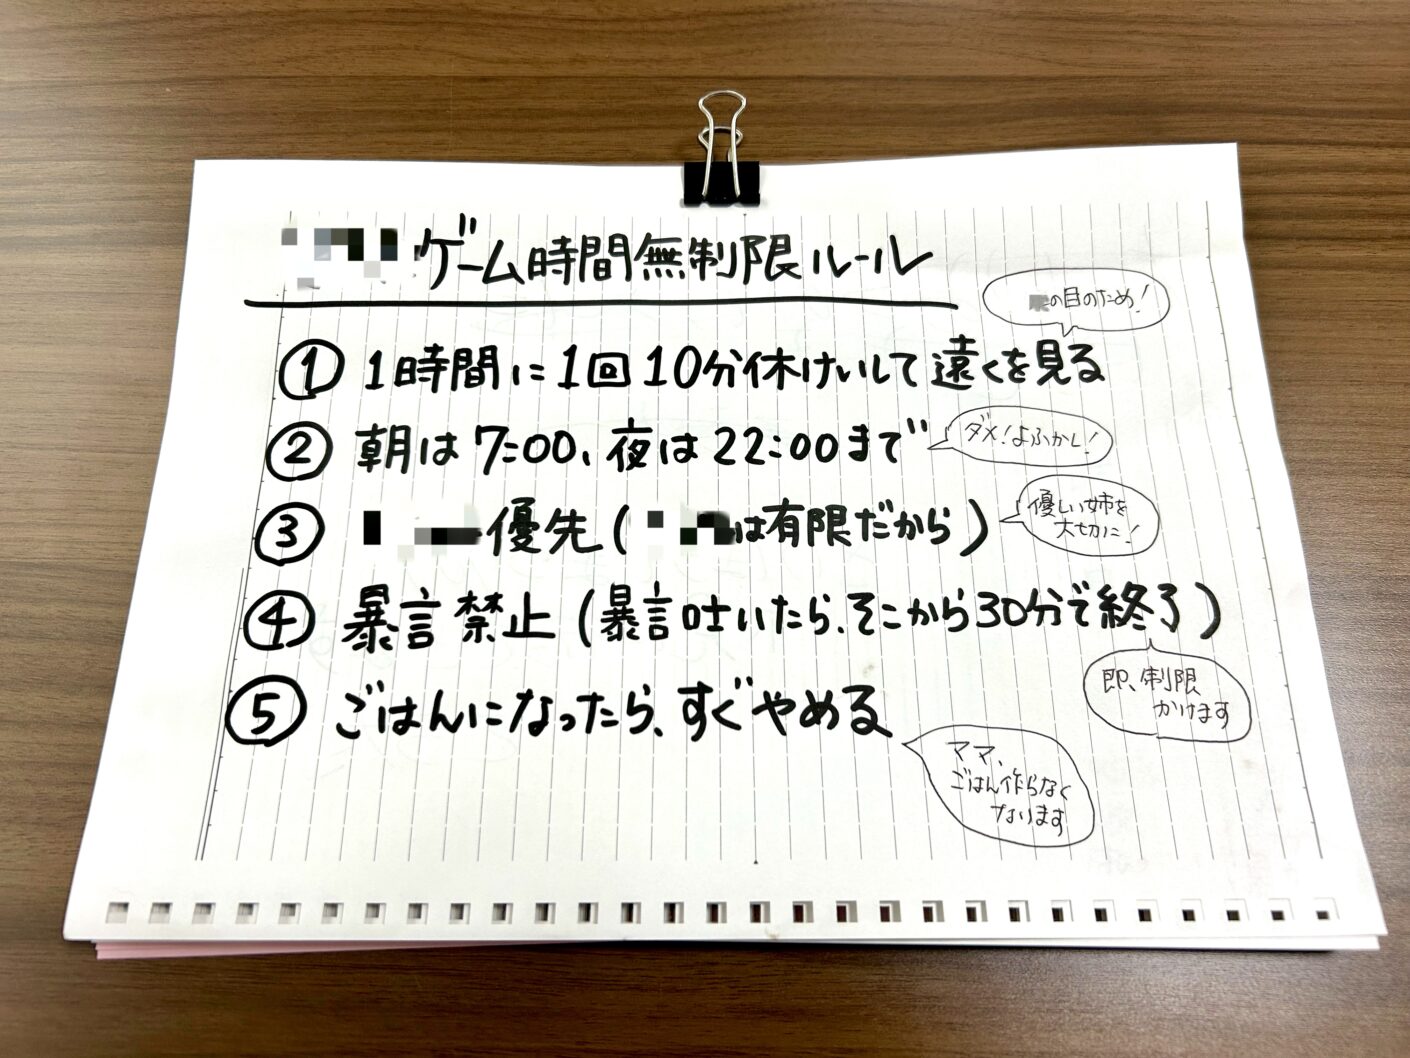 ゲーム時間無制限ルール
の目のため!
① 1時間に1回10分休けいして遠くを見る
② 朝は7:00、夜は22:00まで
ダメ!よふかし!
③ 優先(は有限だから)
優しい姉を
大切に!
④ 暴言禁止(暴言吐いたら、そこから30分で終了)
即、制限
かけます
⑤ ごはんになったら、すぐやめる
ママ、
ごはん作らなく
なります